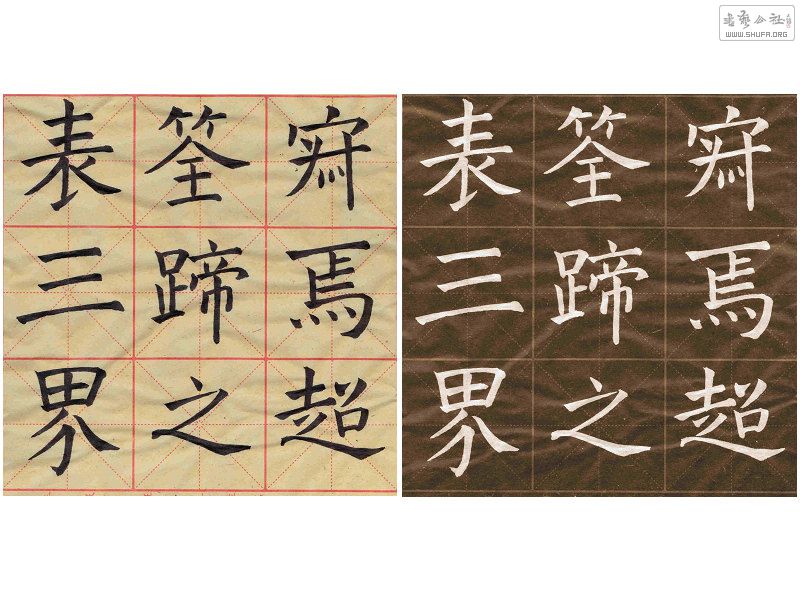 書藝公社
WWW.SHUFA.ORG
寂焉超
筌蹄之
表三界
寂焉超
筌蹄之
表三界